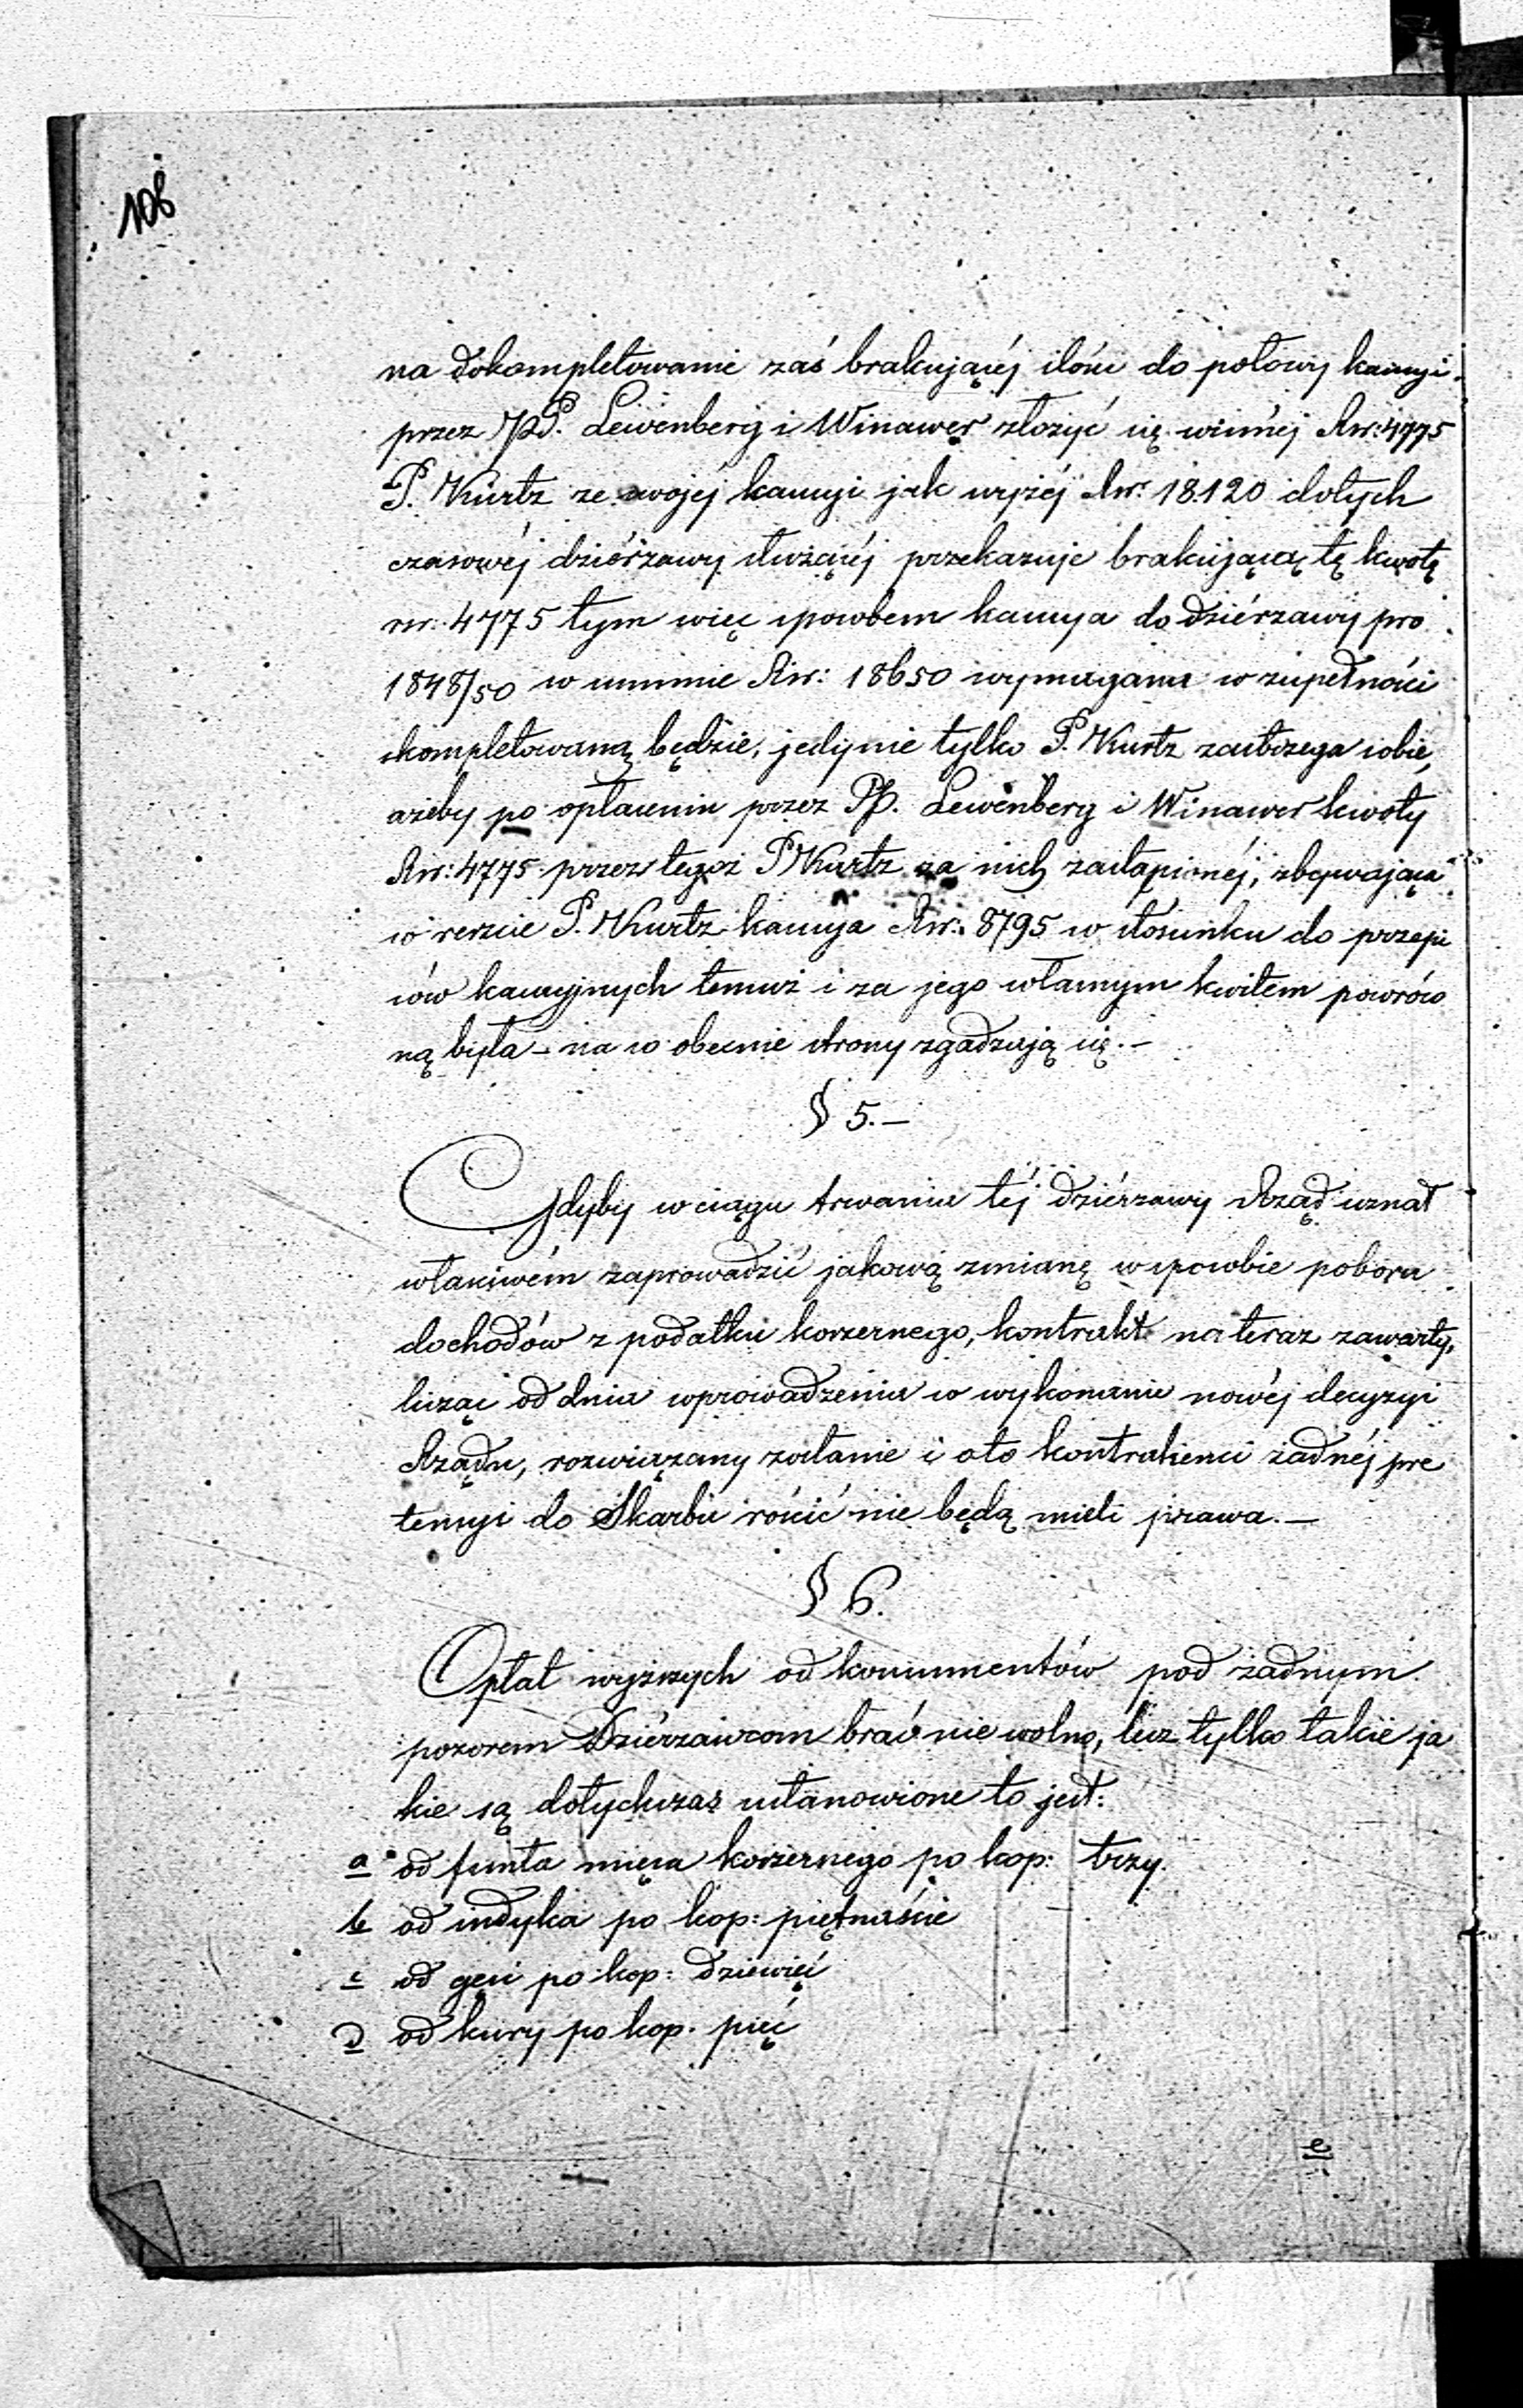 106
na dokompletowanie zaś brakującéj ilości do połowy kaucyi
przez PP. Lewenberg i Winawer złożyć się winnéj Rsr: 4775
P. Kurtz ze swojéj kaucyi jak wyżéj Rsr: 18.120 dotych
czasowéj dziérżawy służącéj przekazuje brakującą tę kwotę
rsr: 4775 tym więc sposobem kaucya do dziérżawy pro
1848/50 w summie Rsr: 18650 wymagana w zupełności
skompletowaną będzie, jedynie tylko P. Kurtz zastrzega sobie,
ażeby po opłaceniu przez PP. Lewenberg i Winawer kwoty
Rsr: 4775 przez tegoż P Kurtz za nich zastąpionéj, zbywająca
w reszcie P. Kurtz kaucya Rsr: 8795 w stosunku do przepi
sów kaucyjnych temuż i za jego własnym kwitem powróco
ną była – na co obecnie strony zgadzają się. –
§ 5. –
Gdyby w ciągu trwania téj dziérżawy Rząd uznał
właściwém zaprowadzić jakową zmianę w sposobie poboru
dochodów z podatku koszernego, kontrakt na teraz zawarty,
licząc od dnia wprowadzenia w wykonanie nowéj decyzyi
Rządu, rozwiązany zostanie i oto kontrahenci żadnéj pre
tensyi do Skarbu rościć nie będą mieli prawa. –
§ 6.
Opłat wyższych od konsumentów pod żadnym
pozorem Dziérżawcom brać nie wolno, lecz tylko takie ja
kie są dotychczas ustanowione to jest:
a od funta mięsa koszernego po kop: trzy.
b od indyka po kop: piętnaście
c od gęsi po kop: dziewięć
d od kury po kop. pięć
e